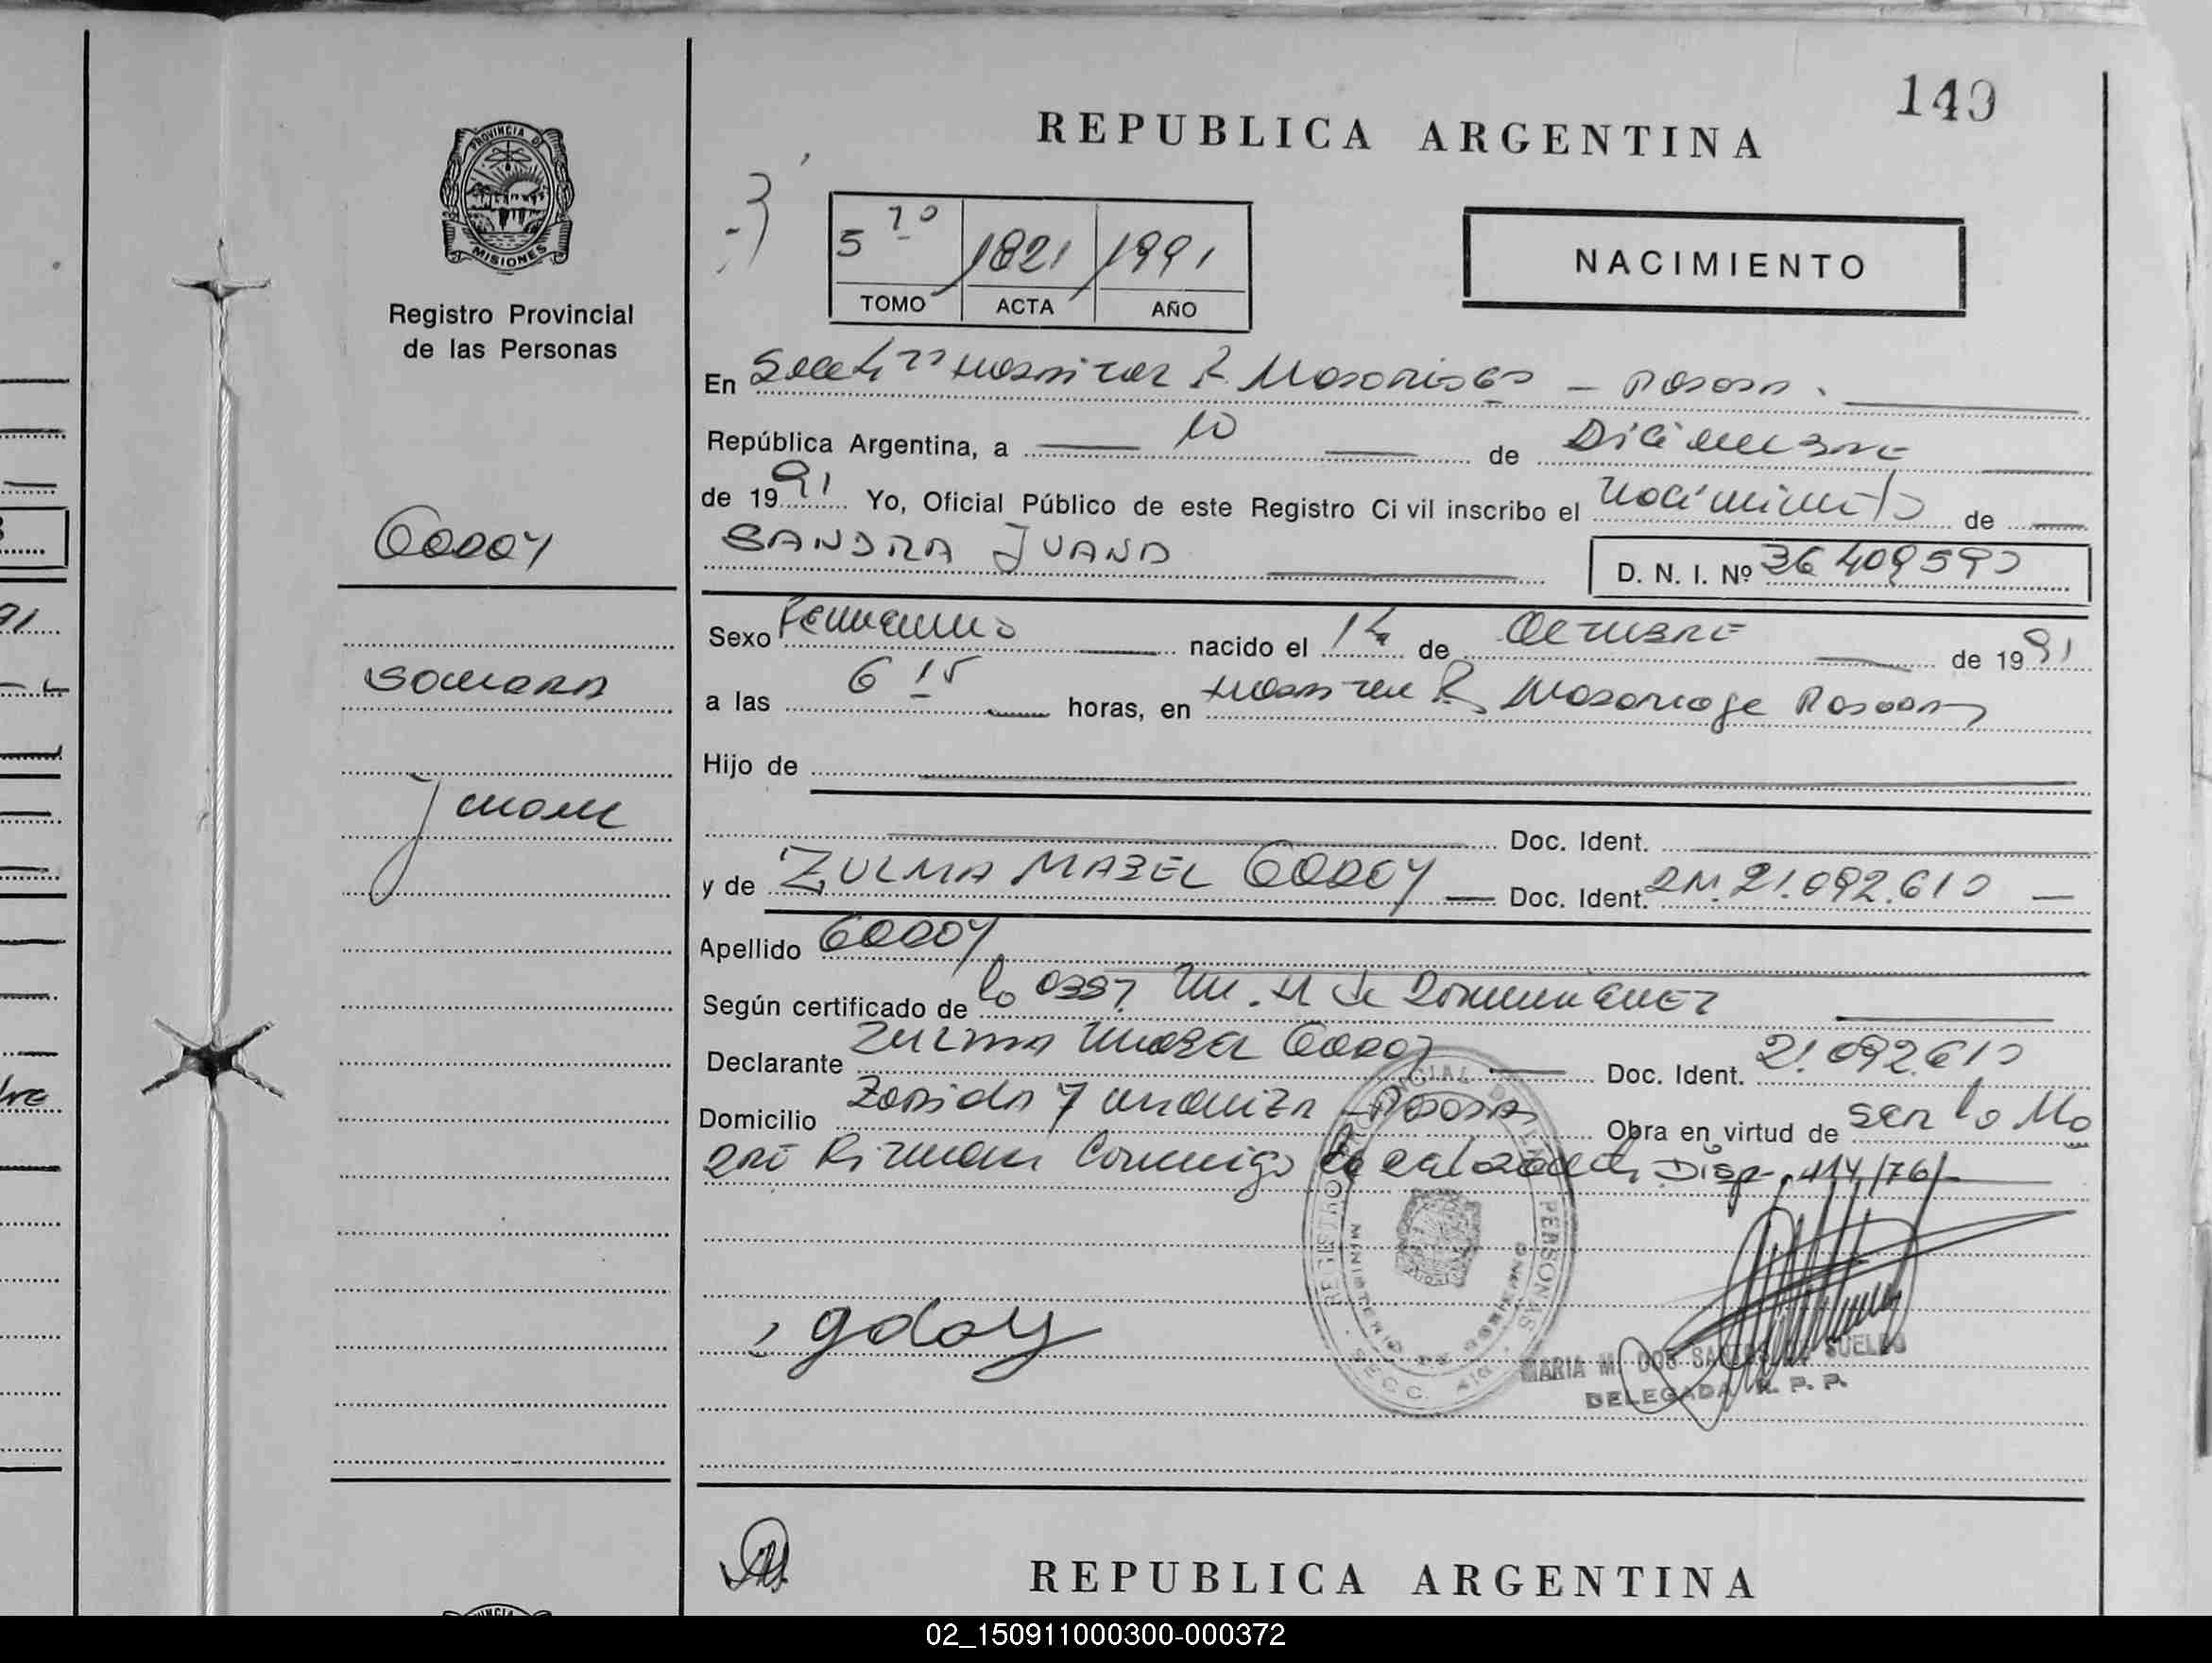 149
REPUBLICA ARGENTINA
PROVINCIA DE
MISIONES
Registro Provincial
de las Personas
5 7º 1821 1991
TOMO ACTA AÑO
NACIMIENTO
En Hospital R. Madariaga - Posadas.
República Argentina, a 10 de Diciembre
de 1991 Yo, Oficial Público de este Registro Civil inscribo el nacimiento de
GODOY
SANDRA JUANA
D. N. I. Nº 36 409 590
Sexo Femenino nacido el de Octubre de 1991
Sandra
a las 6 15 horas, en Hospital R. Madariaga Posadas
Hijo de
Juana
Doc. Ident.
y de ZULMA MABEL GODOY Doc. Ident. 21.092.610
Apellido GODOY
Según certificado de la Obst.
Declarante Zulma Mabel Godoy Doc. Ident. 21.092.610
Domicilio y - Posadas Obra en virtud de ser la Ma
dre Firman Conmigo Disp. 114/76/-
REGISTRO PROVINCIAL DE LAS PERSONAS
MINISTERIO DE GOBIERNO
godoy
MARIA M. DOS SANTOS DE SUELDO
DELEGADA R. P. P.
REPUBLICA ARGENTINA
02_150911000300-000372